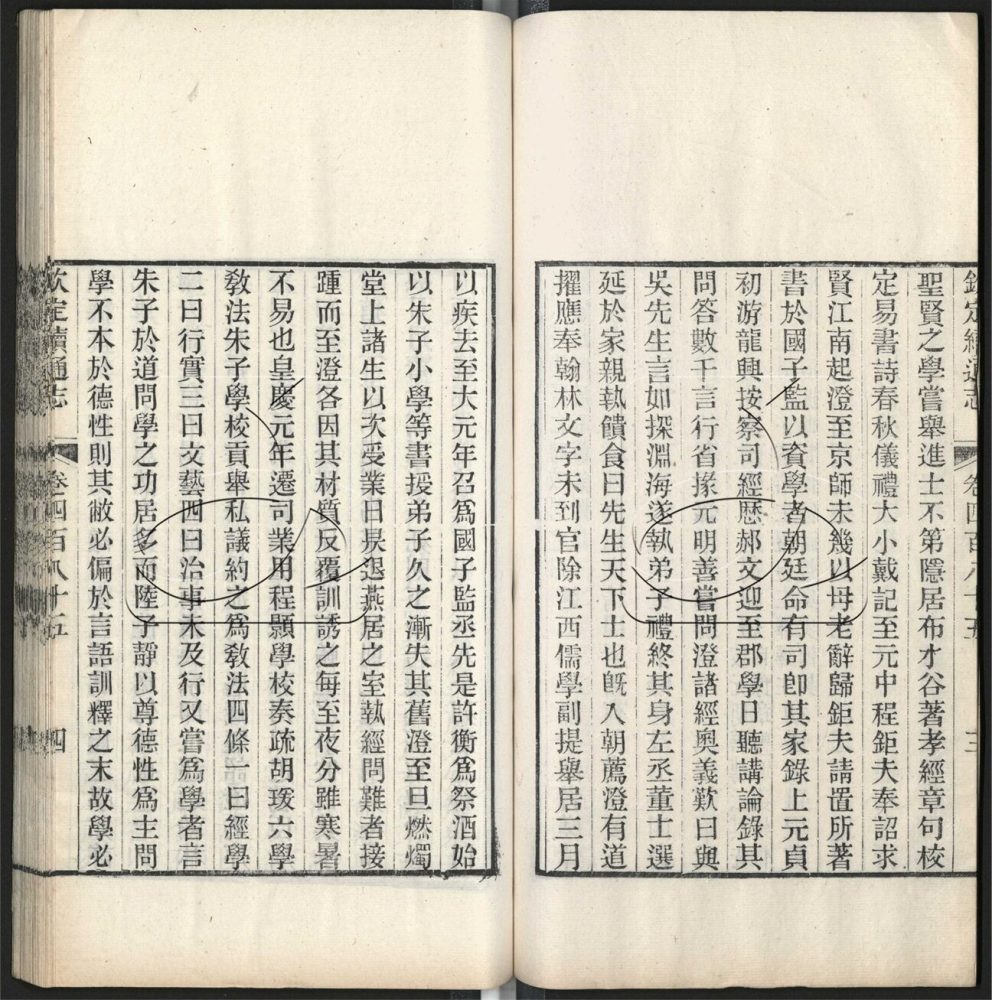 欽定續通志 卷四百八十五 三
聖賢之學嘗舉進士不第隱居布水谷著孝經章句校
定易書詩春秋儀禮大小戴記至元中程鉅夫奉詔求
賢江南起澄至京師未幾以母老辭歸鉅夫請置所著
書於國子監以資學者朝廷命有司卽其家錄上元貞
初游龍興按察司經歷郝文迎至郡學日聽講論錄其
問答數千言行省掾元明善嘗問澄諸經奧義歎曰與
吳先生言如探淵海遂執弟子禮終其身左丞董士選
延於家親執饋食曰先生天下士也旣入朝薦澄有道
擢應奉翰林文字未到官除江西儒學副提舉居三月
以疾去至大元年召爲國子監丞先是許衡爲祭酒始
以朱子小學等書授弟子久之漸失其舊澄至旦燃燭
堂上諸生以次受業日昃退燕居之室執經問難者接
踵而至澄各因其材質反覆訓誘之每至夜分雖寒暑
不易也皇慶元年遷司業用程顥學校奏疏胡瑗六學
敎法朱子學校貢舉私議約之爲敎法四條一曰經學
二曰行實三曰文藝四曰治事未及行又嘗爲學者言
朱子於道問學之功居多而陸子靜以尊德性爲主問
學不本於德性則其敝必偏於言語訓釋之末故學必
欽定續通志 卷四百八十五 四